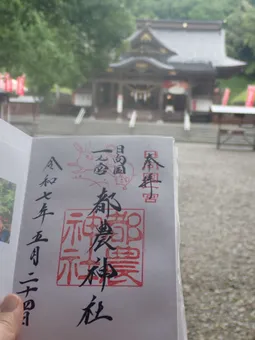 奉拝
日向国
一之宮
都農神社
都農
神社
令和七年五月二十四日